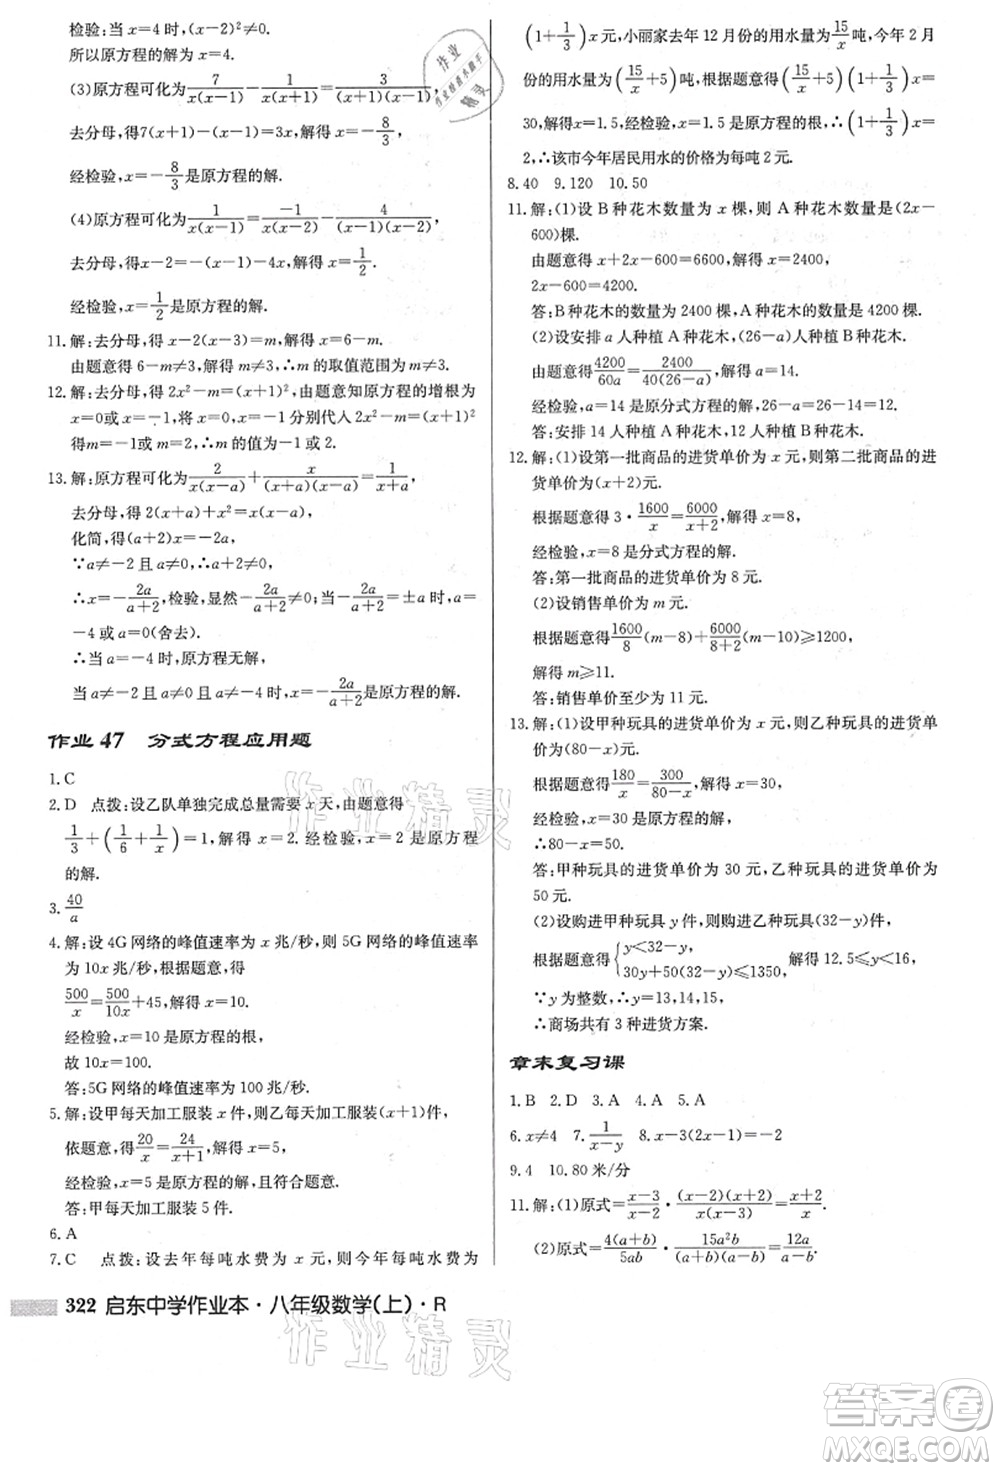 检验:当 x=4 时,(x-2)²≠0.
所以原方程的解为 x=4.
(3)原方程可化为 7/(x(x-1)) - 1/(x(x-1)) =
去分母,得7(x+1)-(x-1)=3x,解得 x=-8/3,
经检验,x=-8/3是原方程的解.
(4)原方程可化为 1/(x-2) = -1/(x-1) - 4/((x-1)(x-2)),
去分母,得 x-1=-(x-2)-4x,解得 x=1/2.
经检验,x=1/2是原方程的解.
11.解:去分母,得 x-2(x-3)=m,解得 x=6-m.
由题意得 6-m≠3,解得 m≠3,∴m 的取值范围为 m≠3.
12.解:去分母,得 2x²-m=(x+1)²,由题意知原方程的增根为
x=0或 x=-1,将 x=0,x=-1 分别代入 2x²-m=(x+1)²,
求得m=-1或 m=2,∴m 的值为-1 或 2.
13.解:原方程可化为 2/(x(x-a)) + x/((x+a)(x-a)) = 1/x,
去分母,得 2(x+a)+x²=x(x+a)(x-a)
化简,得(a+2)x=-2a,
∵a≠-2 且 a≠0,∴a+2≠0,
∴x=-2a/(a+2),检验,显然-2a/(a+2)=±a 时,a=
-4或 a=0(舍去).
∴当 a=-4时,原方程无解,
当 a≠-2 且 a≠0 且 a≠-4 时,x=-2a/(a+2)是原方程的解.
作业 47 分式方程应用题
1.C
2.D 点拨:设乙队单独完成总量需要 x 天,由题意得
1/3+(1/6+1/x)=1,解得 x=2. 经检验,x=2 是原方程
的解.
3.40/a
4.解:设 4G 网络的峰值速率为 x 兆/秒,则 5G 网络的峰值速率
为 10x 兆/秒,根据题意,得
500/x=500/10x+45,解得 x=10.
经检验,x=10 是原方程的根,
故 10x=100.
答:5G 网络的峰值速率为 100 兆/秒.
5.解:设甲每天加工服装 x 件,则乙每天加工服装(x+1)件,
依题意,得20/x=24/(x+1),解得 x=5,
经检验,x=5 是原方程的解,且符合题意.
答:甲每天加工服装 5 件.
6.A
7.C 点拨:设去年每吨水费为 x 元,则今年每吨水费为
(1+1/3)x 元,小丽家去年 12 月份的用水量为15/x吨,今年 2 月
份的用水量为(15/x+5)吨,根据题意,得(15/x+5)×(1+1/3)x=
30,解得x=1.5,经检验,x=1.5是原方程的根,∴(1+1/3)x=
2,∴该市今年居民用水的价格为每吨 2 元.
8.40 9.120 10.50
11.解:(1)设 B 种花木数量为 x 棵,则 A 种花木数量是(2x-
600)棵.
由题意得 x+2x-600=6600,解得 x=2400,
2x-600=4200.
答:B种花木的数量为 2400 棵,A种花木的数量是 4200 棵.
(2)设安排 a 人种植 A 种花木,(26-a)人种植 B 种花木,
由题意得4200/60a=2400/40(26-a),解得 a=14.
经检验,a=14是原分式方程的解,26-a=26-14=12.
答:安排 14 人种植 A 种花木,12 人种植 B 种花木.
12.解:(1)设第一批商品的进货单价为 x 元,则第二批商品的进
货单价为(x+2)元.
根据题意得 3·1600/x=6000/(x+2),解得 x=8,
经检验,x=8 是分式方程的解.
答:第一批商品的进货单价为 8 元.
(2)设销售单价为 m 元.
根据题意得1600/8(m-8)+6000/(8+2)(m-10)≥1200,
解得 m≥11.
答:销售单价至少为 11 元.
13.解:(1)设甲种玩具的进货单价为 x 元,则乙种玩具的进货单
价为(80-x)元,
根据题意得180/x=300/(80-x),解得 x=30,
经检验,x=30 是原方程的解,
∴80-x=50.
答:甲种玩具的进货单价为 30 元,乙种玩具的进货单价为
50 元.
(2)设购进甲种玩具 y 件,则购进乙种玩具(32-y)件,
根据题意得{y<32-y, 30y+50(32-y)≤1350, 解得 12.5≤y<16,
∵y 为整数,∴y=13,14,15,
∴商场共有 3 种进货方案.
章末复习课
1.B 2.D 3.A 4.A 5.A
6.x≠4 7.1/(x-y) 8.x-3(2x-1)=-2
9.4 10.80 米/分
11.解:(1)原式=(x-3)/(x-2)·(x-2)(x+2)/(x(x-3))=(x+2)/x.
(2)原式=4(a+b)/5ab·15a²b/((a+b)(a-b))=12a/(a-b).
322 启东中学作业本·八年级数学(上)·R
作业精灵
作业精灵
答案圈
MXQE.COM